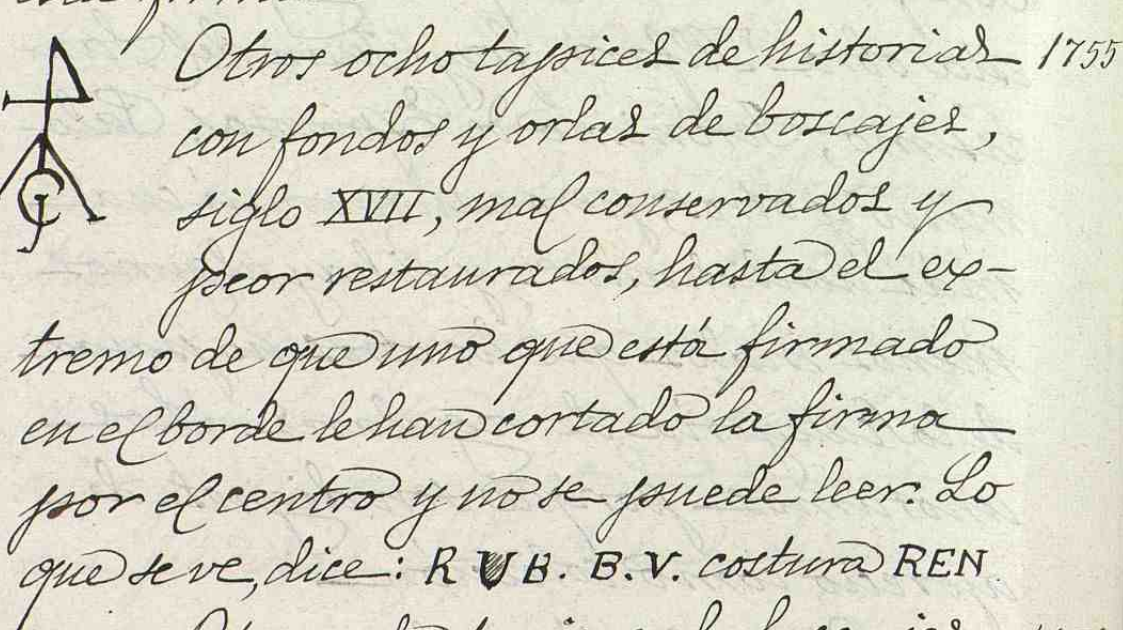 Otros ocho tapices de historias 1755
con fondos y orlas de boscajes,
siglo XVII, mal conservados y
peor restaurados, hasta el ex-
tremo de que uno que está firmado
en el borde le han cortado la firma
por el centro y no se puede leer. Lo
que se ve, dice: R U B. B. V. costura REN